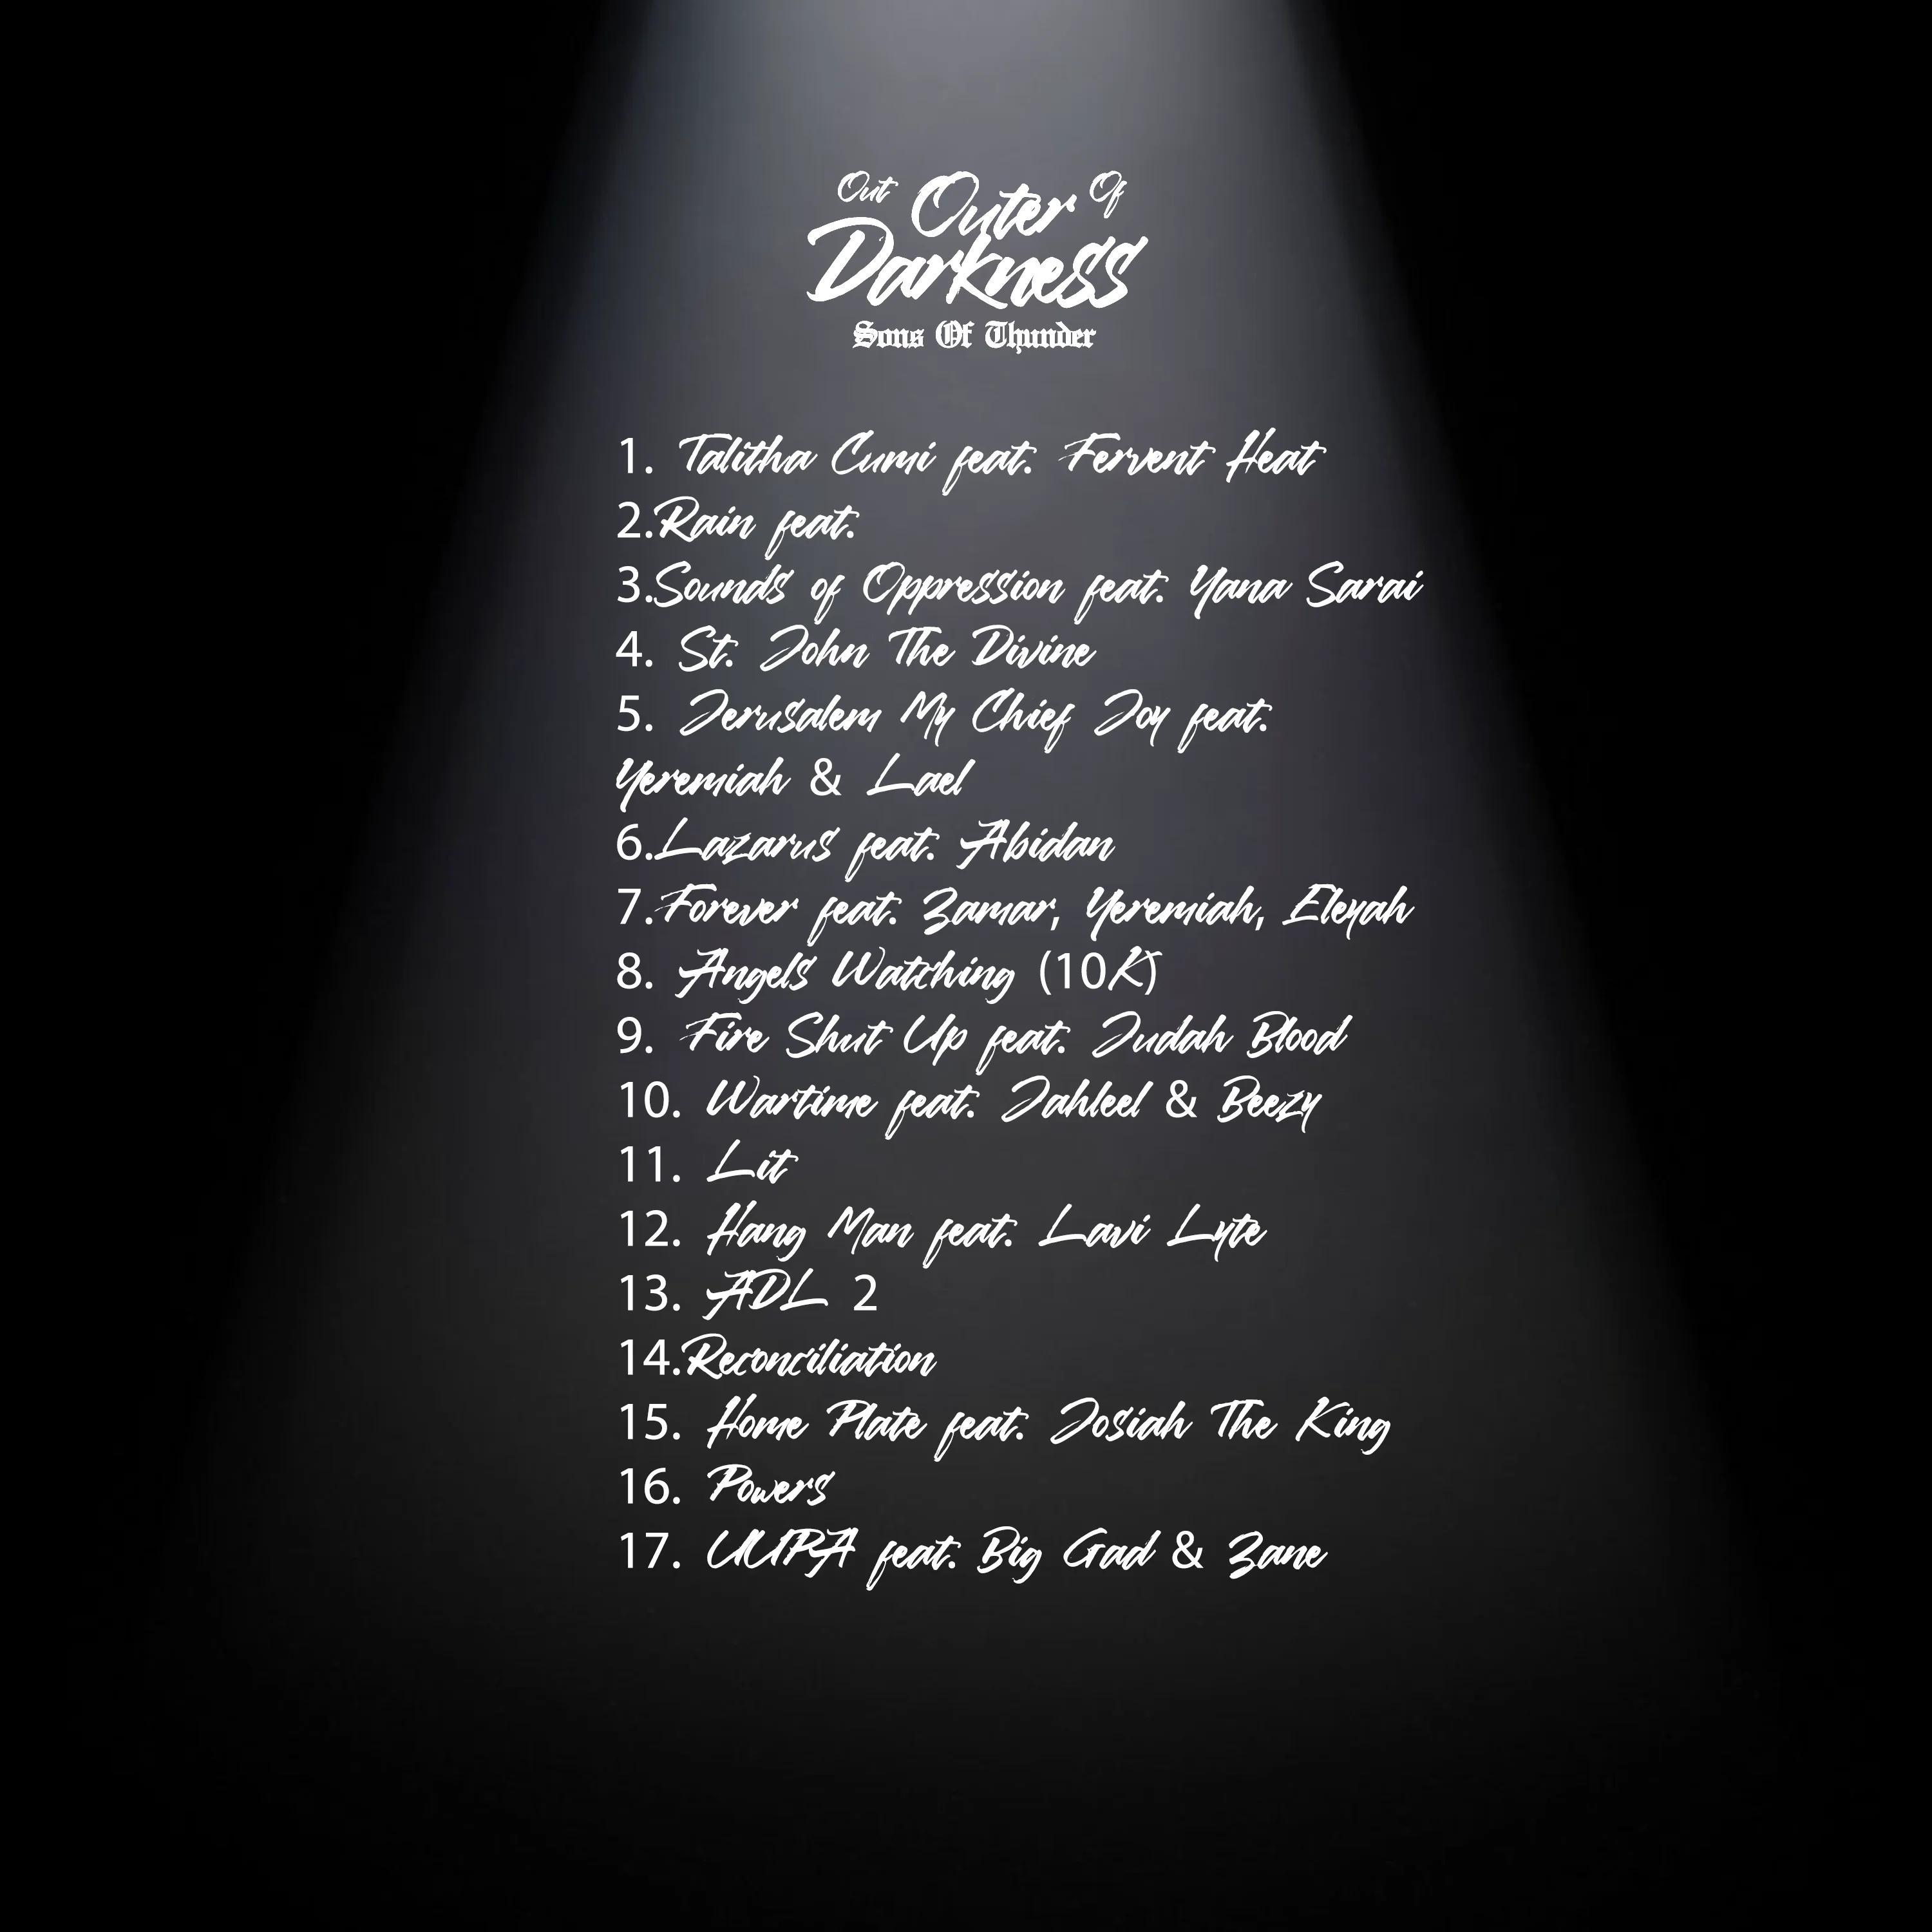 Out Outer Of
Darkness
Sons Of Thunder
1. Talitha Cumi feat. Fervent Heat
2.Rain feat.
3.Sounds of Oppression feat. Yana Sarai
4. St. John The Divine
5. Jerusalem My Chief Joy feat.
Yeremiah & Lael
6.Lazarus feat. Abidan
7.Forever feat. Zamar, Yeremiah, Eleyah
8. Angels Watching (10K)
9. Fire Shut Up feat. Judah Blood
10. Wartime feat. Jahleel & Beezy
11. Lit
12. Hang Man feat. Lavi Lyte
13. ADL 2
14.Reconciliation
15. Home Plate feat. Josiah The King
16. Powers
17. UUPA feat. Big Gad & Zane